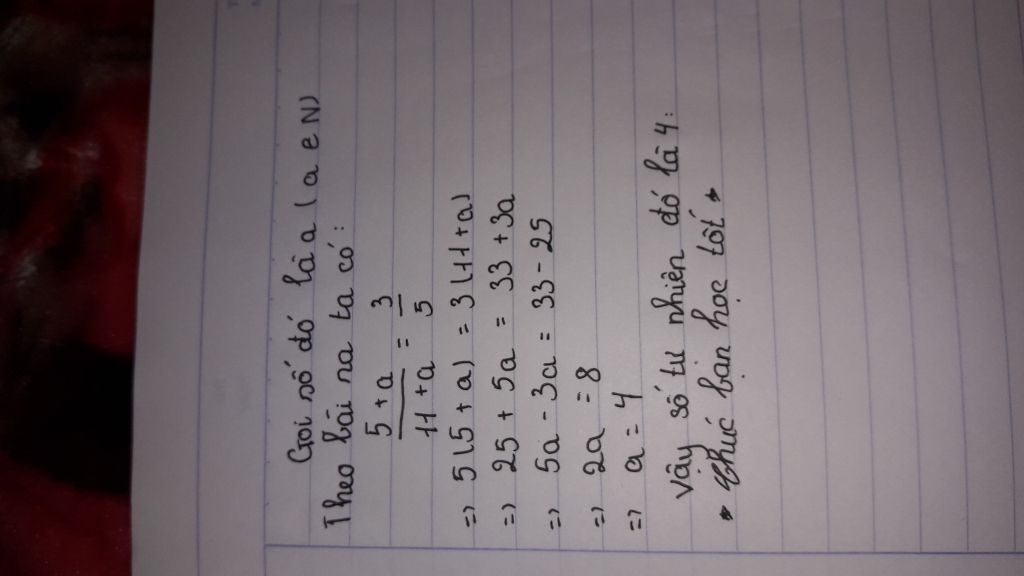 Gọi số đó là a (a e N)
Theo bài ra ta có:
5 + a / 11 + a = 3 / 5
=> 5(5 + a) = 3(11+a)
=> 25 + 5a = 33 + 3a
=> 5a - 3a = 33 - 25
=> 2a = 8
=> a = 4
Vậy số tự nhiên đó là 4.
* Chúc bạn học tốt *